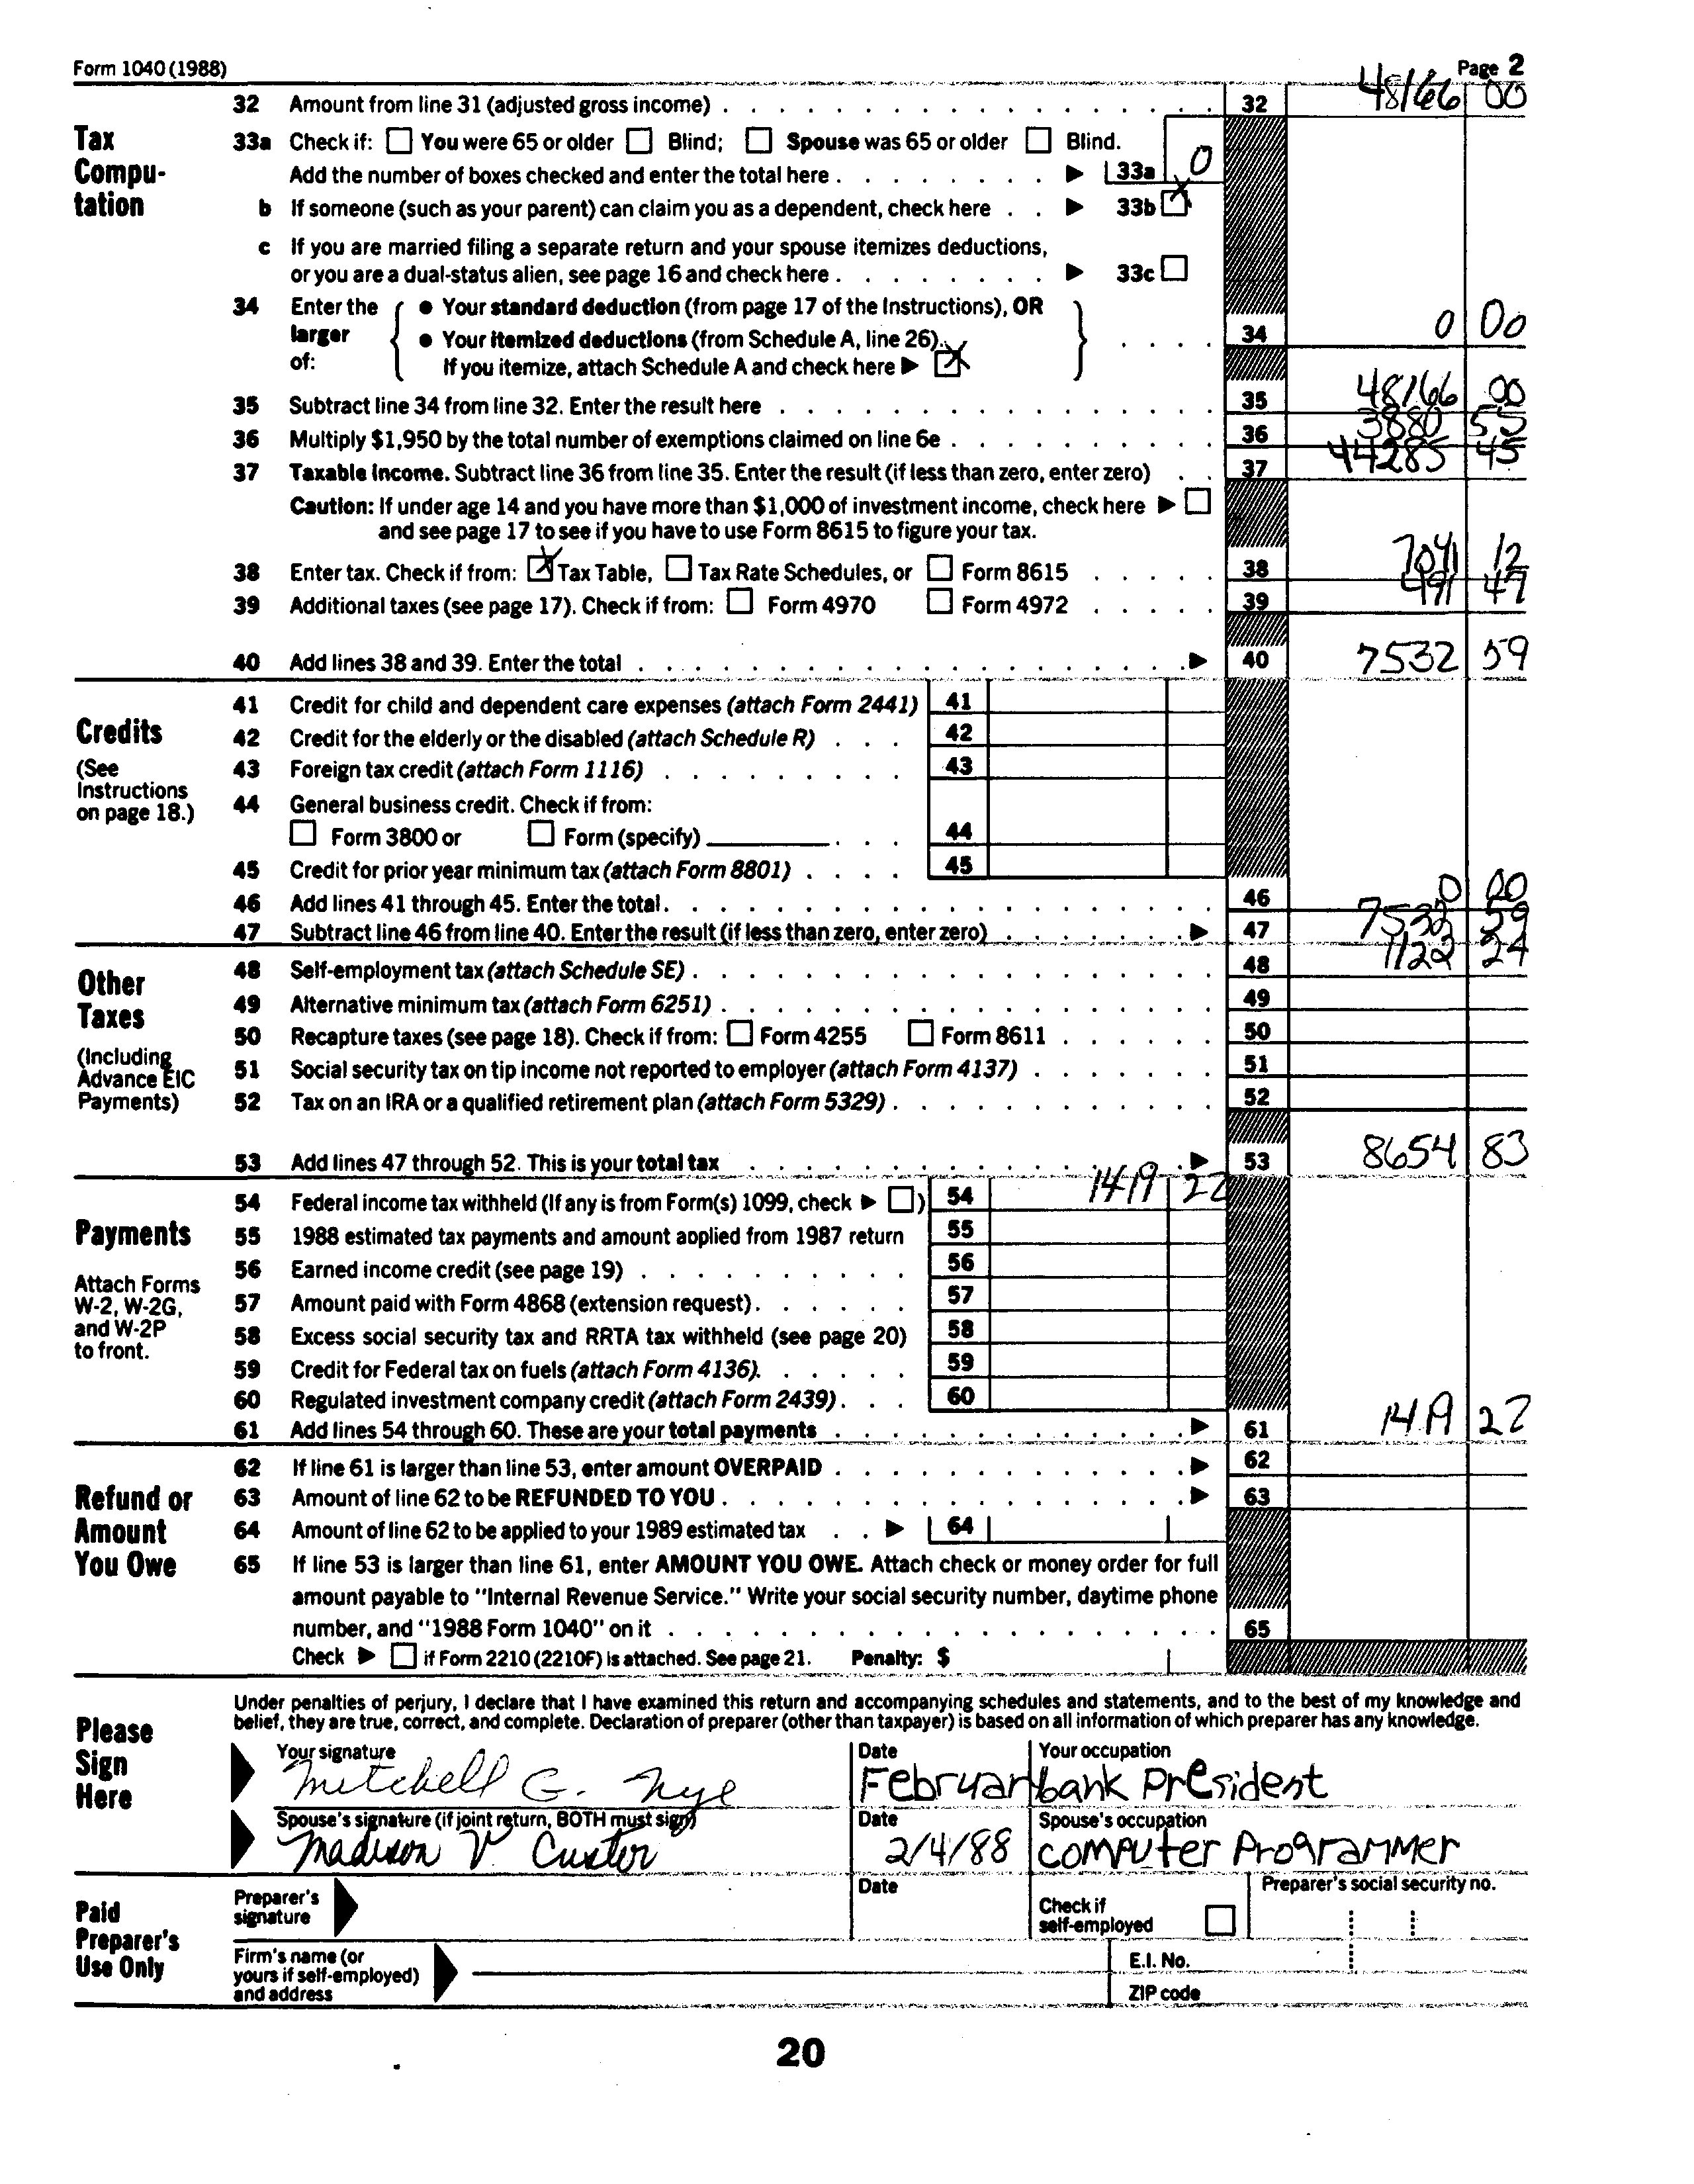 Form 1040 (1988) Page 2
32 Amount from line 31 (adjusted gross income) 32 48166 00
Tax Compu-tation
33a Check if: You were 65 or older Blind; Spouse was 65 or older Blind.
Add the number of boxes checked and enter the total here 33a 0
b If someone (such as your parent) can claim you as a dependent, check here 33b X
c If you are married filing a separate return and your spouse itemizes deductions,
or you are a dual-status alien, see page 16 and check here 33c
34 Enter the larger of: { • Your standard deduction (from page 17 of the Instructions), OR
• Your itemized deductions (from Schedule A, line 26). } 34 0 00
If you itemize, attach Schedule A and check here X
35 Subtract line 34 from line 32. Enter the result here 35 48166 00
36 Multiply $1,950 by the total number of exemptions claimed on line 6e 36 3880 55
37 Taxable income. Subtract line 36 from line 35. Enter the result (if less than zero, enter zero) 37 44285 45
Caution: If under age 14 and you have more than $1,000 of investment income, check here
and see page 17 to see if you have to use Form 8615 to figure your tax.
38 Enter tax. Check if from: X Tax Table, Tax Rate Schedules, or Form 8615 38 7041 12
39 Additional taxes (see page 17). Check if from: Form 4970 Form 4972 39 491 47
40 Add lines 38 and 39. Enter the total 40 7532 59
Credits
(See Instructions on page 18.)
41 Credit for child and dependent care expenses (attach Form 2441) 41
42 Credit for the elderly or the disabled (attach Schedule R) 42
43 Foreign tax credit (attach Form 1116) 43
44 General business credit. Check if from:
Form 3800 or Form (specify) 44
45 Credit for prior year minimum tax (attach Form 8801) 45
46 Add lines 41 through 45. Enter the total 46 0 00
47 Subtract line 46 from line 40. Enter the result (if less than zero, enter zero) 47 7532 59
Other Taxes
(Including Advance EIC Payments)
48 Self-employment tax (attach Schedule SE) 48 1122 24
49 Alternative minimum tax (attach Form 6251) 49
50 Recapture taxes (see page 18). Check if from: Form 4255 Form 8611 50
51 Social security tax on tip income not reported to employer (attach Form 4137) 51
52 Tax on an IRA or a qualified retirement plan (attach Form 5329) 52
53 Add lines 47 through 52. This is your total tax 53 8654 83
Payments
Attach Forms W-2, W-2G, and W-2P to front.
54 Federal income tax withheld (If any is from Form(s) 1099, check ) 54 1419 22
55 1988 estimated tax payments and amount applied from 1987 return 55
56 Earned income credit (see page 19) 56
57 Amount paid with Form 4868 (extension request) 57
58 Excess social security tax and RRTA tax withheld (see page 20) 58
59 Credit for Federal tax on fuels (attach Form 4136). 59
60 Regulated investment company credit (attach Form 2439) 60
61 Add lines 54 through 60. These are your total payments 61 1419 22
Refund or Amount You Owe
62 If line 61 is larger than line 53, enter amount OVERPAID 62
63 Amount of line 62 to be REFUNDED TO YOU 63
64 Amount of line 62 to be applied to your 1989 estimated tax 64
65 If line 53 is larger than line 61, enter AMOUNT YOU OWE. Attach check or money order for full
amount payable to "Internal Revenue Service." Write your social security number, daytime phone
number, and "1988 Form 1040" on it 65
Check if Form 2210 (2210F) is attached. See page 21. Penalty: $
Please Sign Here
Under penalties of perjury, I declare that I have examined this return and accompanying schedules and statements, and to the best of my knowledge and
belief, they are true, correct, and complete. Declaration of preparer (other than taxpayer) is based on all information of which preparer has any knowledge.
Your signature Date Your occupation
Mitchell G. Nye Februar bank President
Spouse's signature (if joint return, BOTH must sign) Date Spouse's occupation
Madison V. Custor 2/4/88 computer Programmer
Paid Preparer's Use Only
Preparer's signature Date Check if self-employed Preparer's social security no.
Firm's name (or yours if self-employed) and address E.I. No.
ZIP code
20